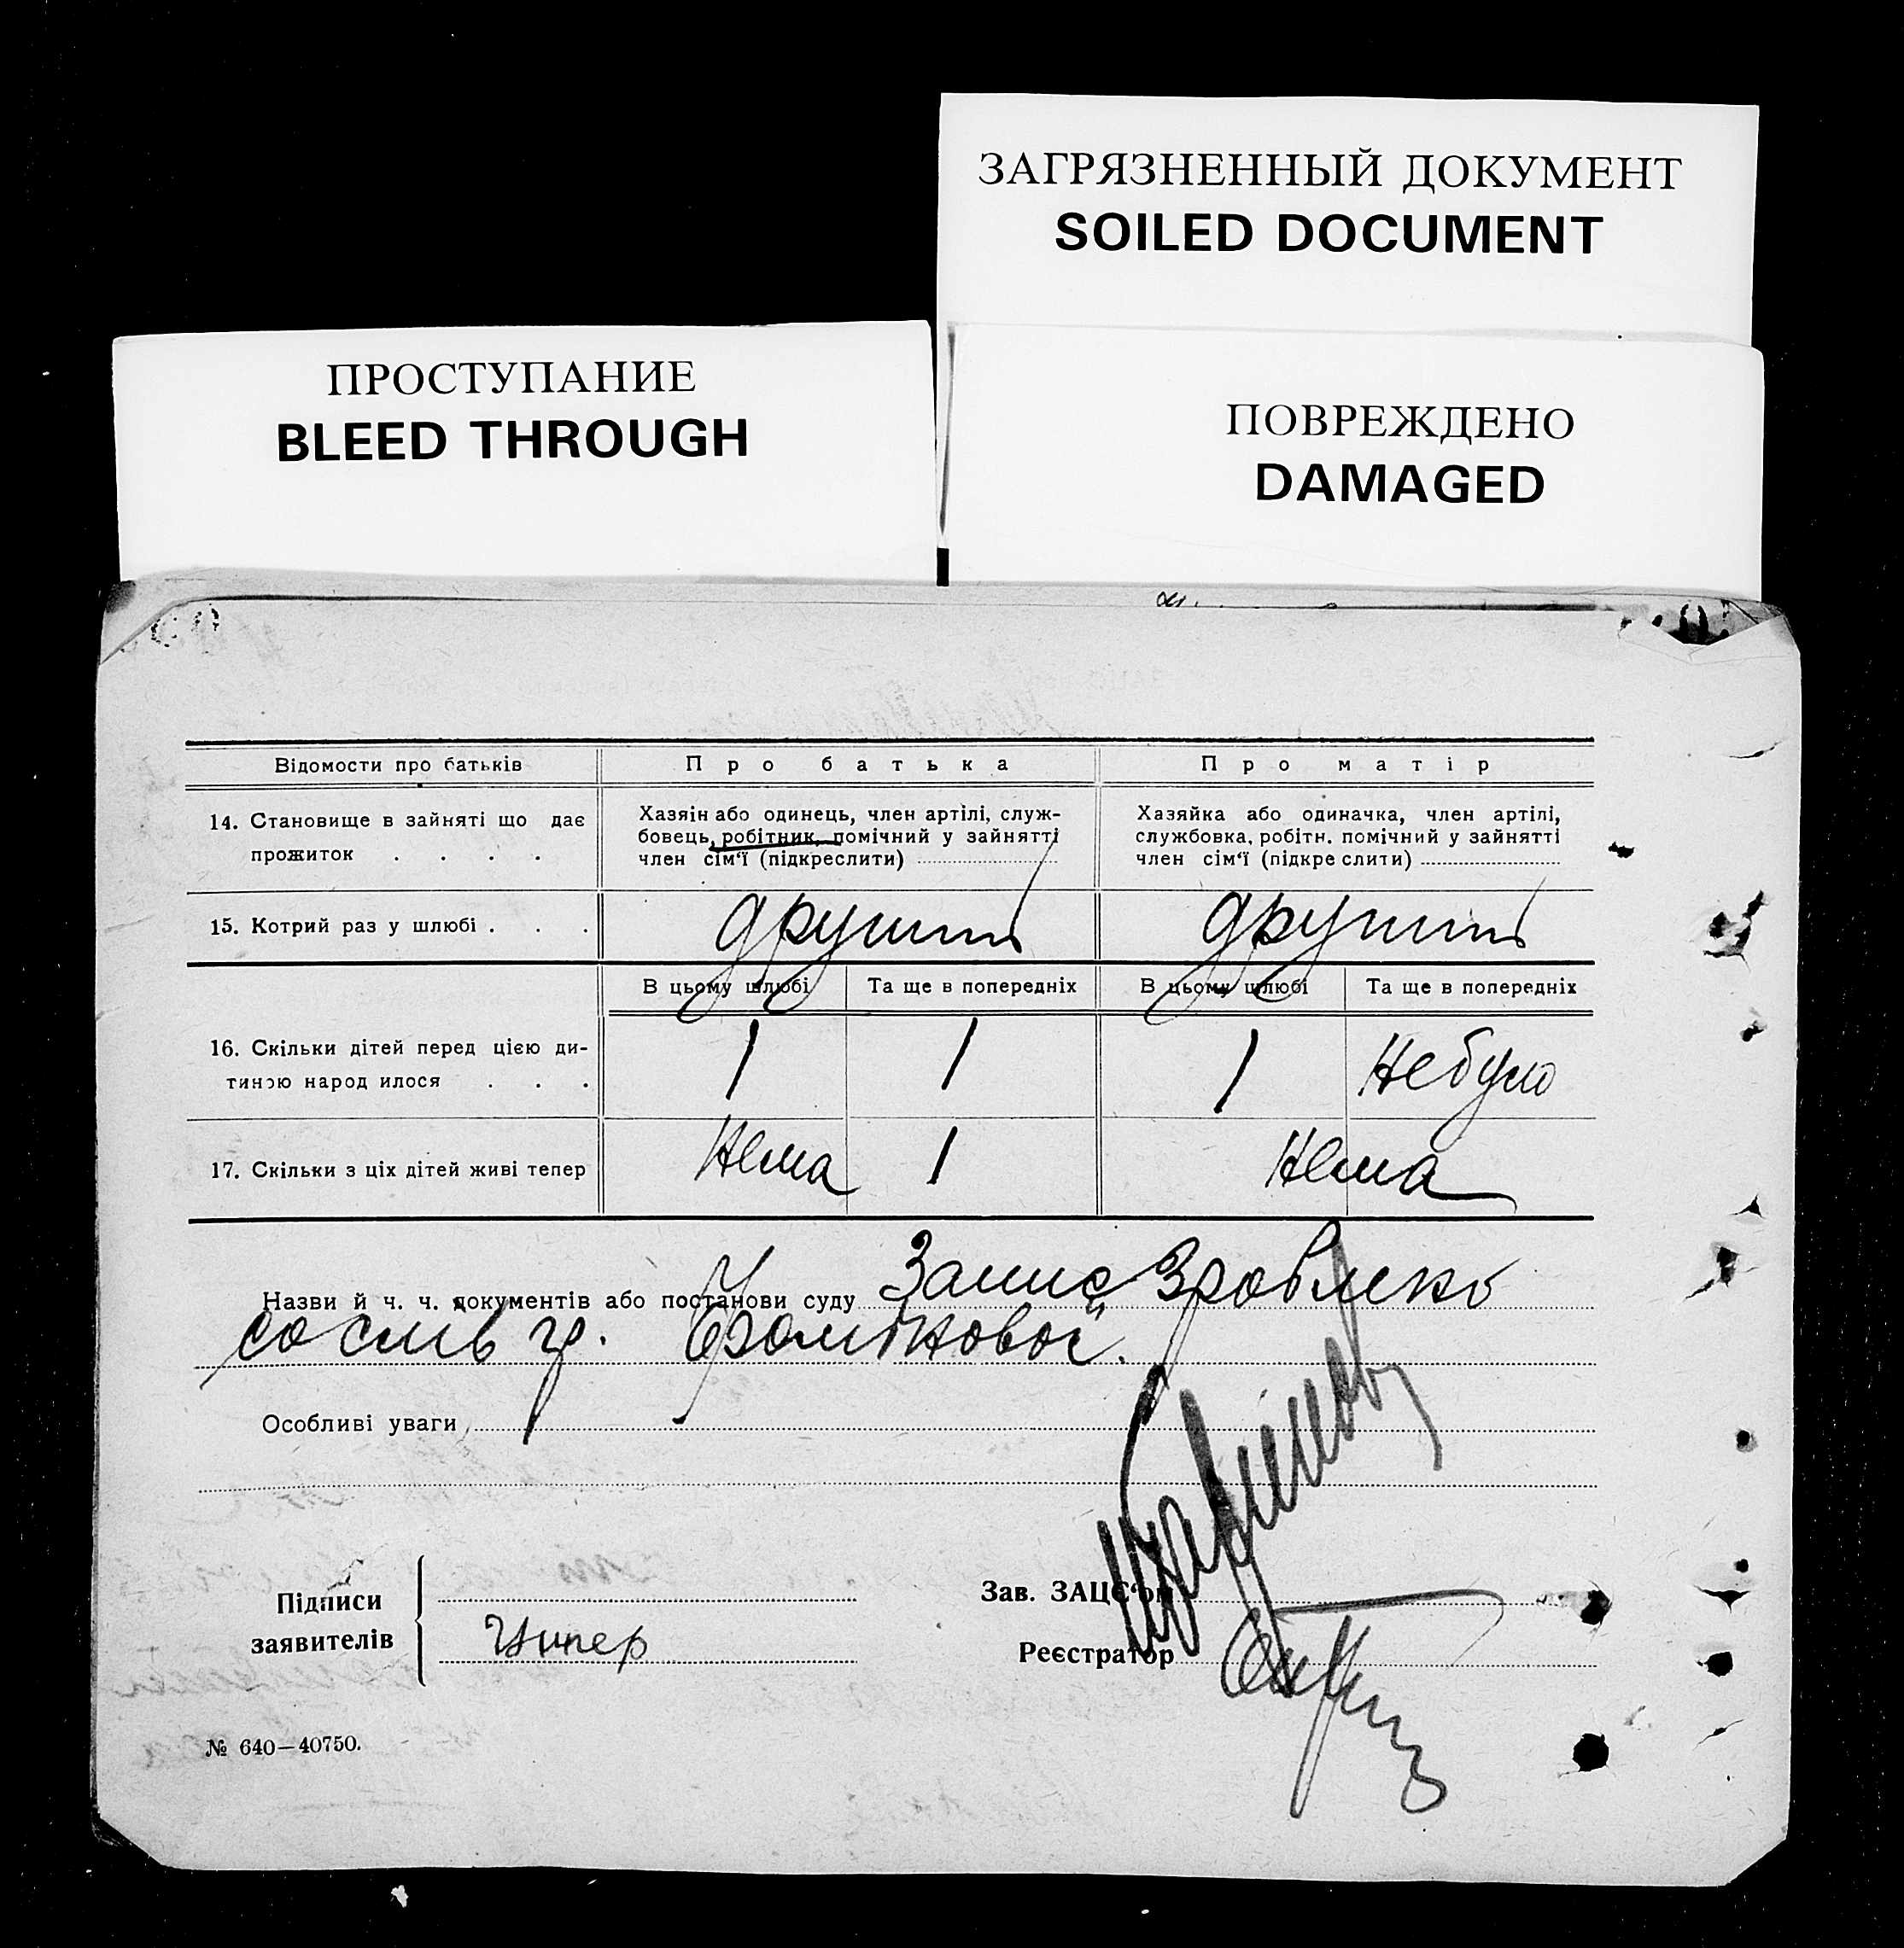 ЗАГРЯЗНЕННЫЙ ДОКУМЕНТ
SOILED DOCUMENT
ПРОСТУПАНИЕ
BLEED THROUGH
ПОВРЕЖДЕНО
DAMAGED
Відомости про батьків
Про батька
Про матір
14. Становище в зайняті що дає
прожиток . . . .
Хазяін або одинець, член артілі, служ-
бовець, робітник, помічний у зайнятті
член сім'ї (підкреслити)
Хазяйка або одиначка, член артілі,
службовка, робітн. помічний у зайнятті
член сім'ї (підкреслити)
15. Котрий раз у шлюбі . . .
другий
другий
В цьому шлюбі
Та ще в попередніх
В цьому шлюбі
Та ще в попередніх
16. Скільки дітей перед цією ди-
тиною народилося . . .
1
1
1
Небуло
17. Скільки з ціх дітей живі тепер
Нема
1
Нема
Назви й ч. ч. документів або постанови суду Запис Зроблено
со слів гр.
Особливі уваги
Підписи
заявителів
Зав. ЗАЦС'ом
Реєстратор
№ 640—40750.